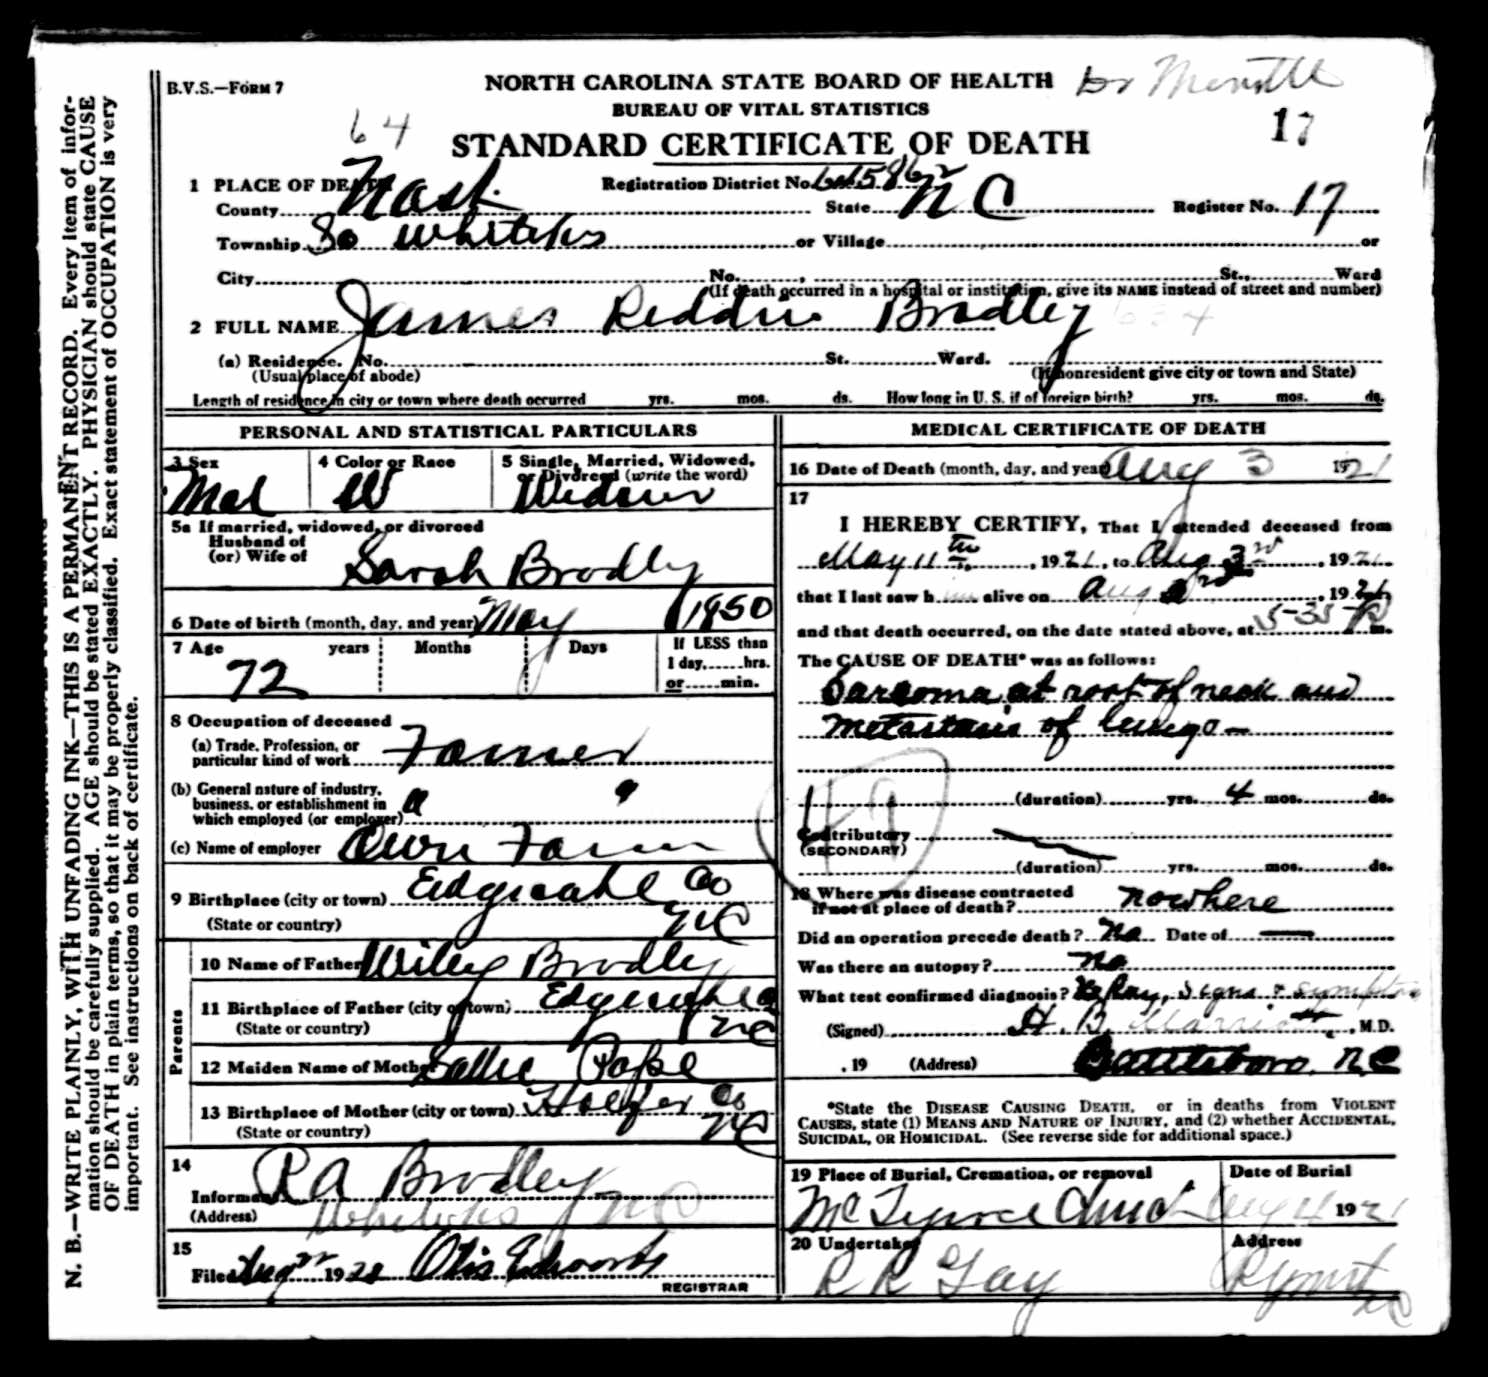 B.V.S.—FORM 7
NORTH CAROLINA STATE BOARD OF HEALTH
BUREAU OF VITAL STATISTICS
64
STANDARD CERTIFICATE OF DEATH
17
1 PLACE OF DEATH
Registration District No.
County Nash State N C Register No. 17
Township So Whitakers or Village or
City No. , St., Ward
(If death occurred in a hospital or institution, give its NAME instead of street and number)
2 FULL NAME James Reddin Bradley
(a) Residence. No. St. Ward.
(Usual place of abode) (If nonresident give city or town and State)
Length of residence in city or town where death occurred yrs. mos. ds. How long in U. S. if of foreign birth? yrs. mos. ds.
PERSONAL AND STATISTICAL PARTICULARS
3 Sex 4 Color or Race 5 Single, Married, Widowed, or Divorced (write the word)
Mal W Widower
5a If married, widowed, or divorced
Husband of
(or) Wife of Sarah Bradley
6 Date of birth (month, day, and year) May 1850
7 Age years Months Days If LESS than
1 day, hrs.
or min.
72
8 Occupation of deceased
(a) Trade, Profession, or
particular kind of work Farmer
(b) General nature of industry,
business, or establishment in
which employed (or employer)
(c) Name of employer Own Farm
9 Birthplace (city or town) Edgecombe Co
(State or country) NC
Parents
10 Name of Father Wiley Bradley
11 Birthplace of Father (city or town) Edgecombe Co
(State or country) NC
12 Maiden Name of Mother Sallie Pope
13 Birthplace of Mother (city or town) Halifax Co
(State or country) NC
14
Informant R A Bradley
(Address) Whitakers NC
15
Filed Aug 19 Otis Edwards
REGISTRAR
MEDICAL CERTIFICATE OF DEATH
16 Date of Death (month, day, and year) Aug 3 1921
17
I HEREBY CERTIFY, That I attended deceased from
May 11th, 1921, to Aug 3rd, 1921
that I last saw him alive on Aug , 1921
and that death occurred, on the date stated above, at 5-35 P m.
The CAUSE OF DEATH* was as follows:
Sarcoma at root of neck and
metastasis of lungs—
(duration) yrs. 4 mos. ds.
Contributory
(SECONDARY)
(duration) yrs. mos. ds.
18 Where was disease contracted
if not at place of death? nowhere
Did an operation precede death? No Date of
Was there an autopsy? no
What test confirmed diagnosis? X-Ray, signs & symptoms
(Signed) H. B. Marriott, M.D.
, 19 (Address) Battleboro, N.C
*State the DISEASE CAUSING DEATH, or in deaths from VIOLENT
CAUSES, state (1) MEANS AND NATURE OF INJURY, and (2) whether ACCIDENTAL,
SUICIDAL, OR HOMICIDAL. (See reverse side for additional space.)
19 Place of Burial, Cremation, or removal Date of Burial
McTyeire Church Aug 4 1921
20 Undertaker Address
R R Gay
N. B.—WRITE PLAINLY, WITH UNFADING INK—THIS IS A PERMANENT RECORD. Every item of infor-
mation should be carefully supplied. AGE should be stated EXACTLY. PHYSICIAN should state CAUSE
OF DEATH in plain terms, so that it may be properly classified. Exact statement of OCCUPATION is very
important. See instructions on back of certificate.